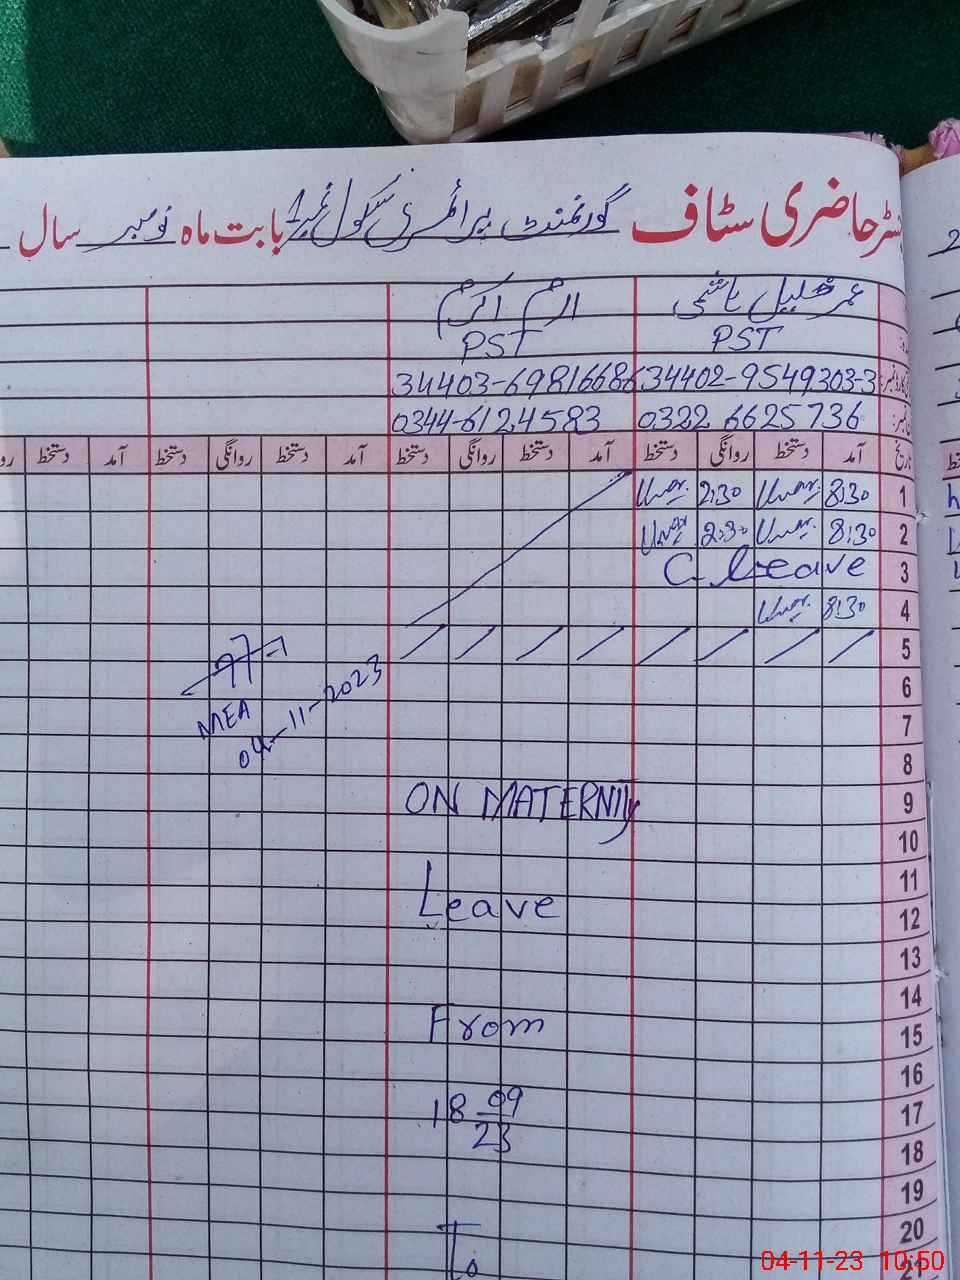 رجسٹر حاضری سٹاف گورنمنٹ پرائمری سکول نمبر 1 بابت ماہ نومبر سال
عمر خلیل ہاشمی ارم اکرم
PST PST
34402-9549303-3 34403-69816686
0322 6625736 0344-6124583
تاریخ آمد دستخط روانگی دستخط آمد دستخط روانگی دستخط آمد دستخط روانگی دستخط آمد دستخط
1 8:30 Umar. 2:30 Umar.
2 8:30 Umar 2:30 Umar
3 C Leave
4 8:30 Umar.
5
6
MEA
04-11-2023
7
8
9 ON MATERNITy
10
11
12 Leave
13
14
15 From
16
17 18 09
23
18
19
20 To
21
04-11-23 10:50